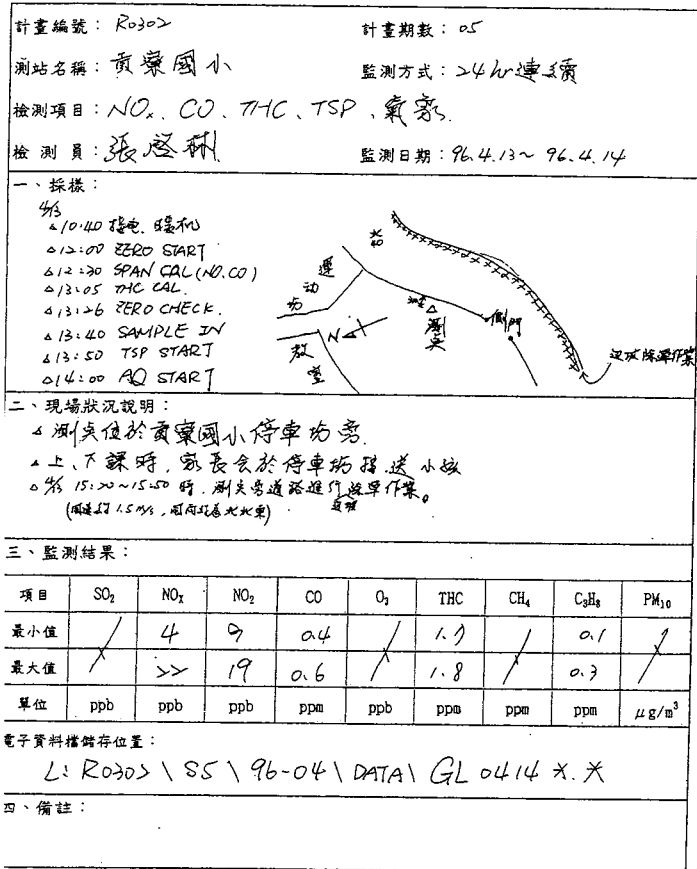 計畫編號：R0302 計畫期數：05
測站名稱：貢寮國小 監測方式：24hr連續
檢測項目：NOx、CO、THC、TSP、氣象.
檢測員：張啓琳 監測日期：96.4.13~96.4.14
一、採樣：
4/13
△10:40 接电、暖机
△12:00 ZERO START
△12:30 SPAN CAL (NO.CO)
△13:05 THC CAL.
△13:26 ZERO CHECK.
△13:40 SAMPLE IN
△13:50 TSP START
△14:00 AQ START
运动场
教室
N
測点
側門
道路除草作業
二、現場狀況說明：
△測点位於貢寮國小停車场旁.
△上、下課時，家長会於停車场接、送小孩
△4/13 15:20~15:50時，測点旁道路進行除草作業。
(風速約1.5m/s，風向北北東)
三、監測結果：
項目 SO2 NOX NO2 CO O3 THC CH4 C3H8 PM10
最小值 4 9 0.4 1.7 0.1
最大值 22 19 0.6 1.8 0.3
單位 ppb ppb ppb ppm ppb ppm ppm ppm μg/m³
電子資料檔儲存位置：
L: R0302 \ S5 \ 96-04 \ DATA \ GL0414*.*
四、備註：